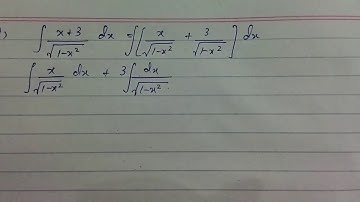 ), ∫ x+3/√1-x² dx = ∫[x/√1-x² + 3/√1-x²] dx
∫ x/√1-x² dx + 3∫ dx/√1-x²